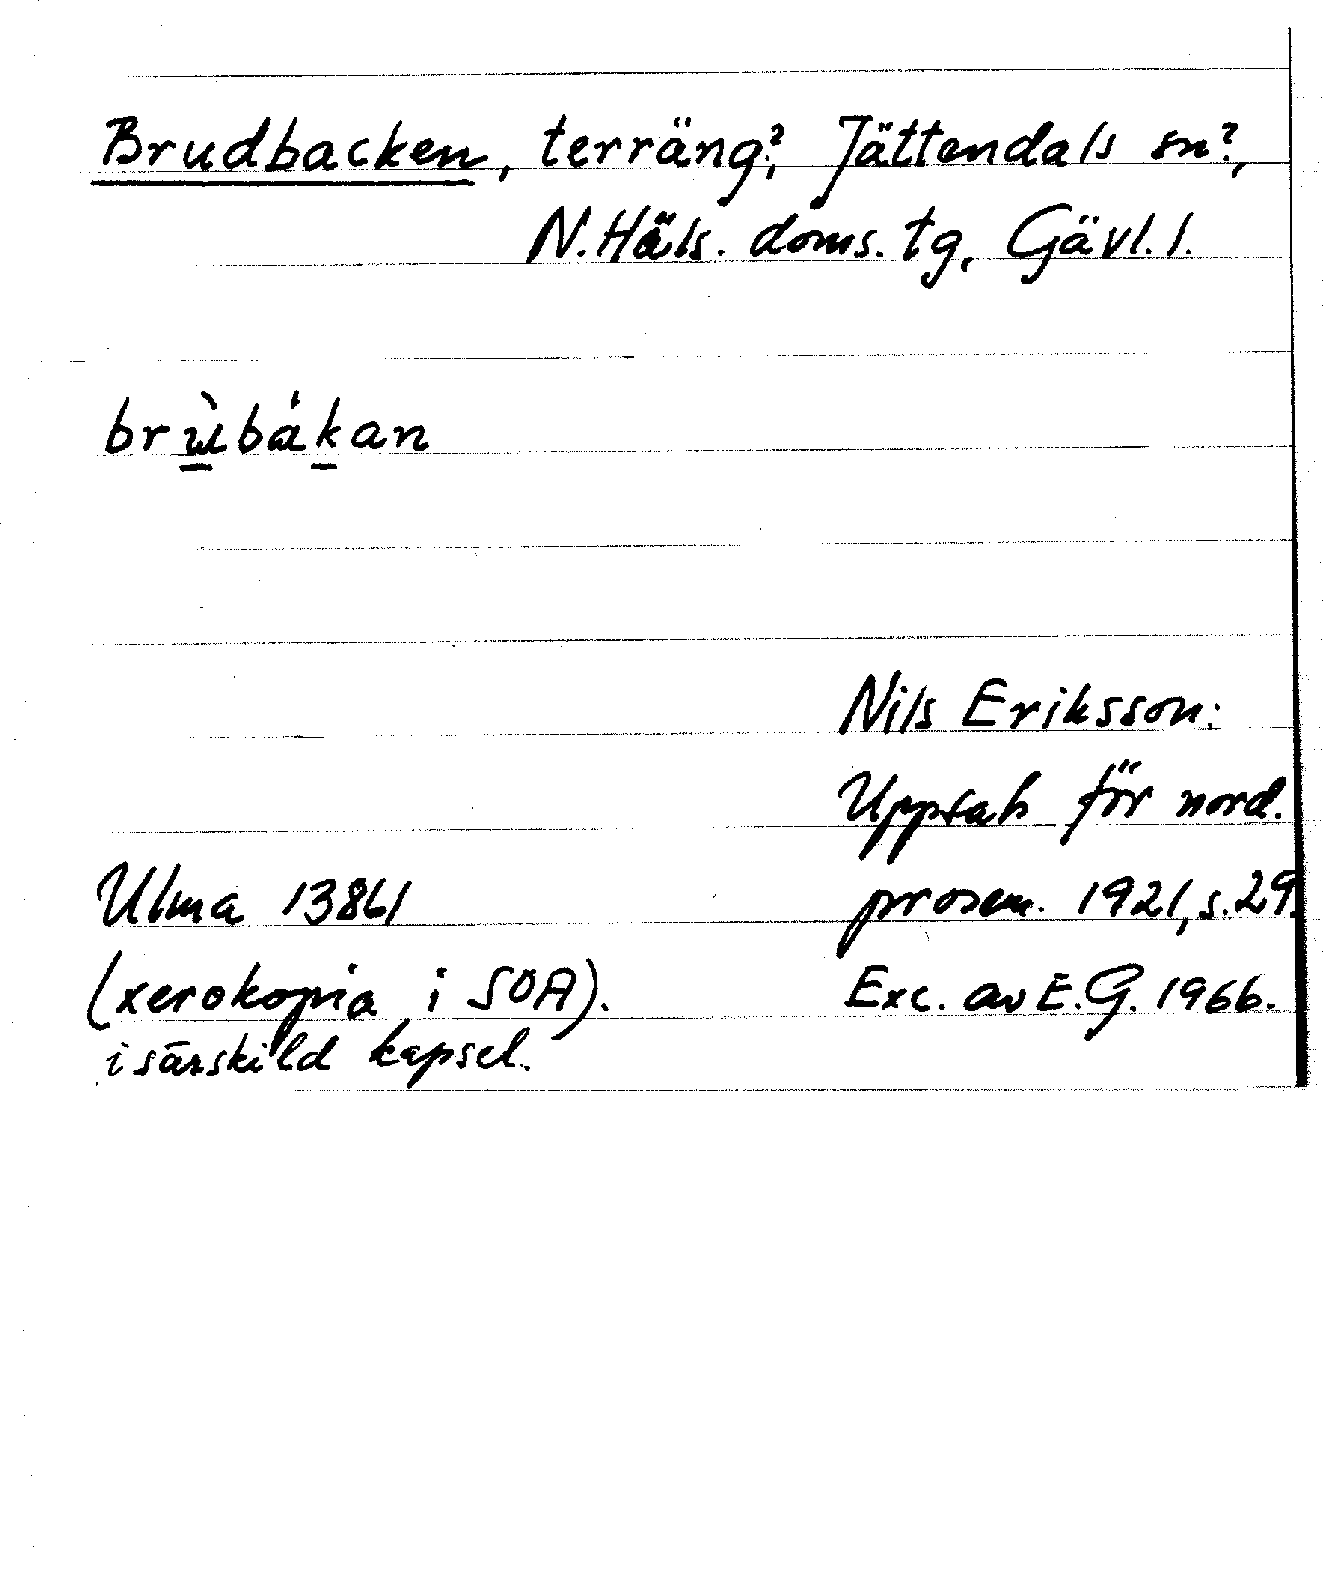 Brudbacken, terräng?, Jättendals sn?,
N. Häls. doms. tg, Gävl. l.
brùbákan
Nils Eriksson:
Uppsats för nord.
prosem. 1921, s. 29.
Ulma 13861
(xerokopia i SOA).
i särskild kapsel.
Exc. av E.G. 1966.